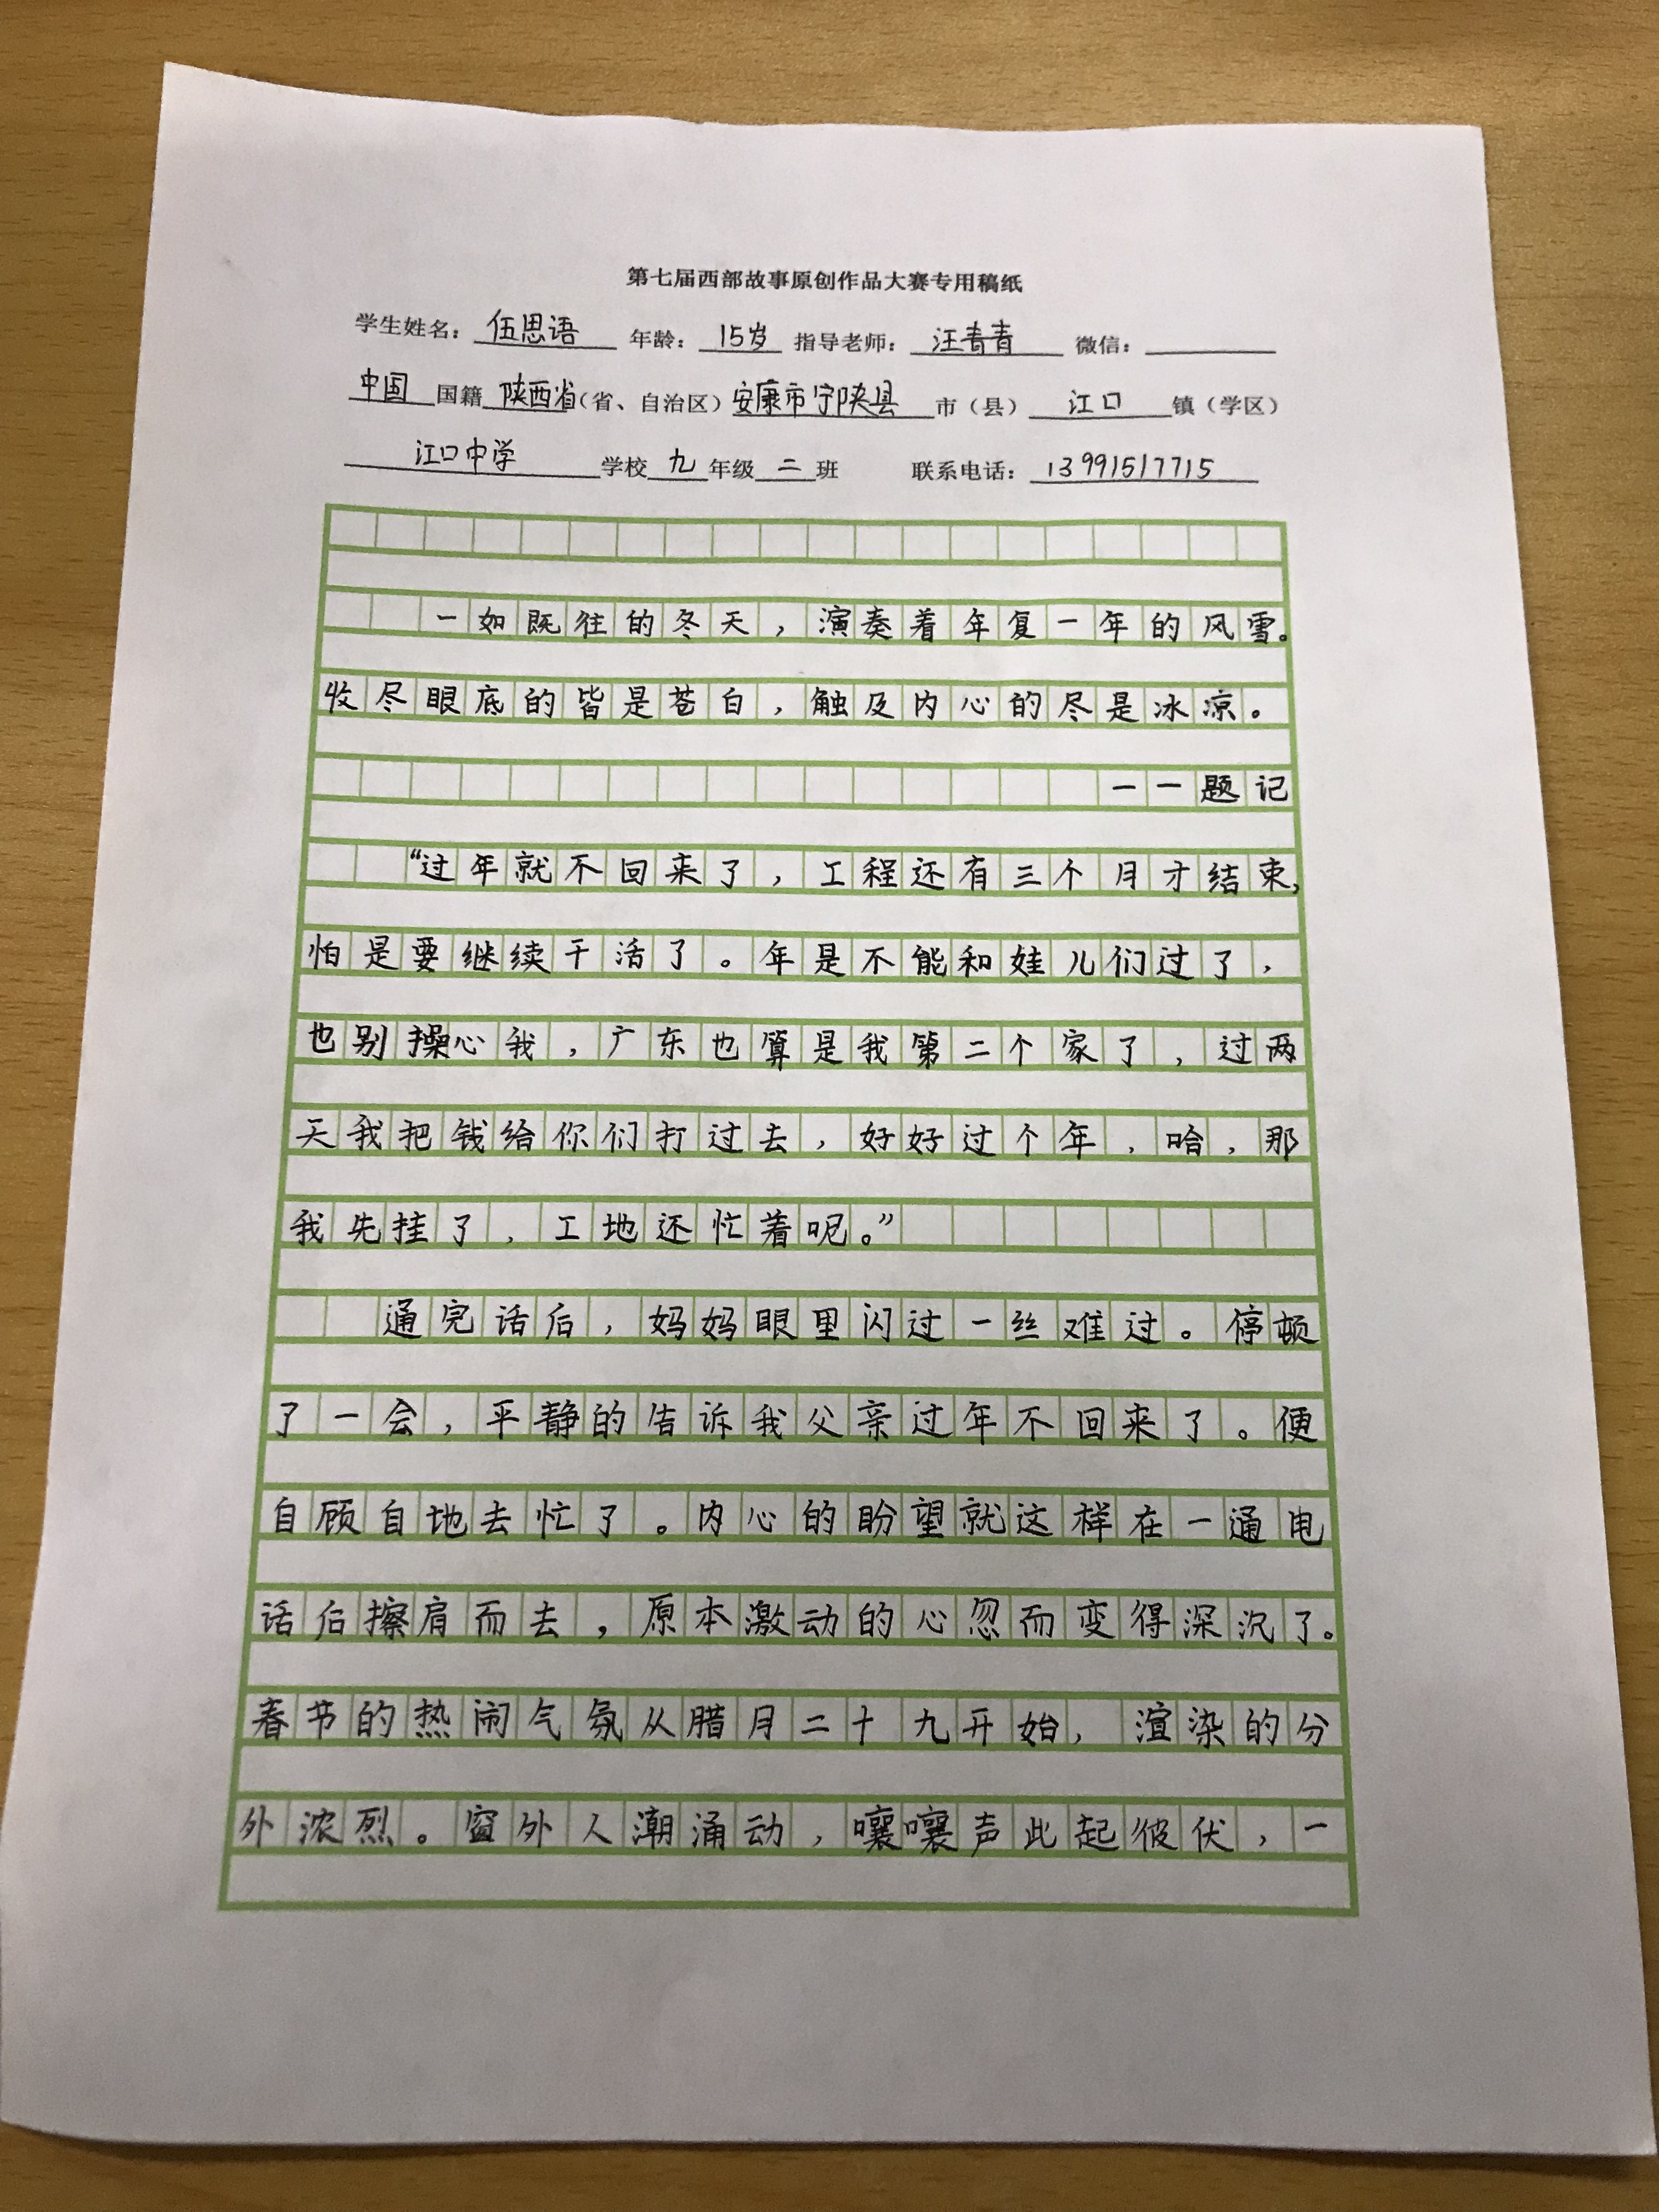 第七届西部故事原创作品大赛专用稿纸
学生姓名：伍思语 年龄：15岁 指导老师：汪青青 微信：
中国国籍陕西省（省、自治区）安康市宁陕县市（县）江口镇（学区）
江口中学学校九年级二班 联系电话：13991517715
一如既往的冬天，演奏着年复一年的风雪。
收尽眼底的皆是苍白，触及内心的尽是冰凉。
——题记
“过年就不回来了，工程还有三个月才结束，
怕是要继续干活了。年是不能和娃儿们过了，
也别操心我，广东也算是我第二个家了，过两
天我把钱给你们打过去，好好过个年，哈，那
我先挂了，工地还忙着呢。”
通完话后，妈妈眼里闪过一丝难过。停顿
了一会，平静的告诉我父亲过年不回来了。便
自顾自地去忙了。内心的盼望就这样在一通电
话后擦肩而去，原本激动的心忽而变得深沉了。
春节的热闹气氛从腊月二十九开始，渲染的分
外浓烈。窗外人潮涌动，嚷嚷声此起彼伏，一